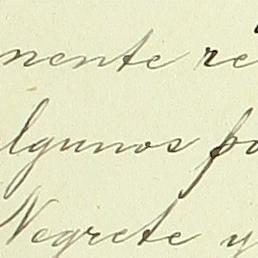 mente re
lgunos po
Negrete y